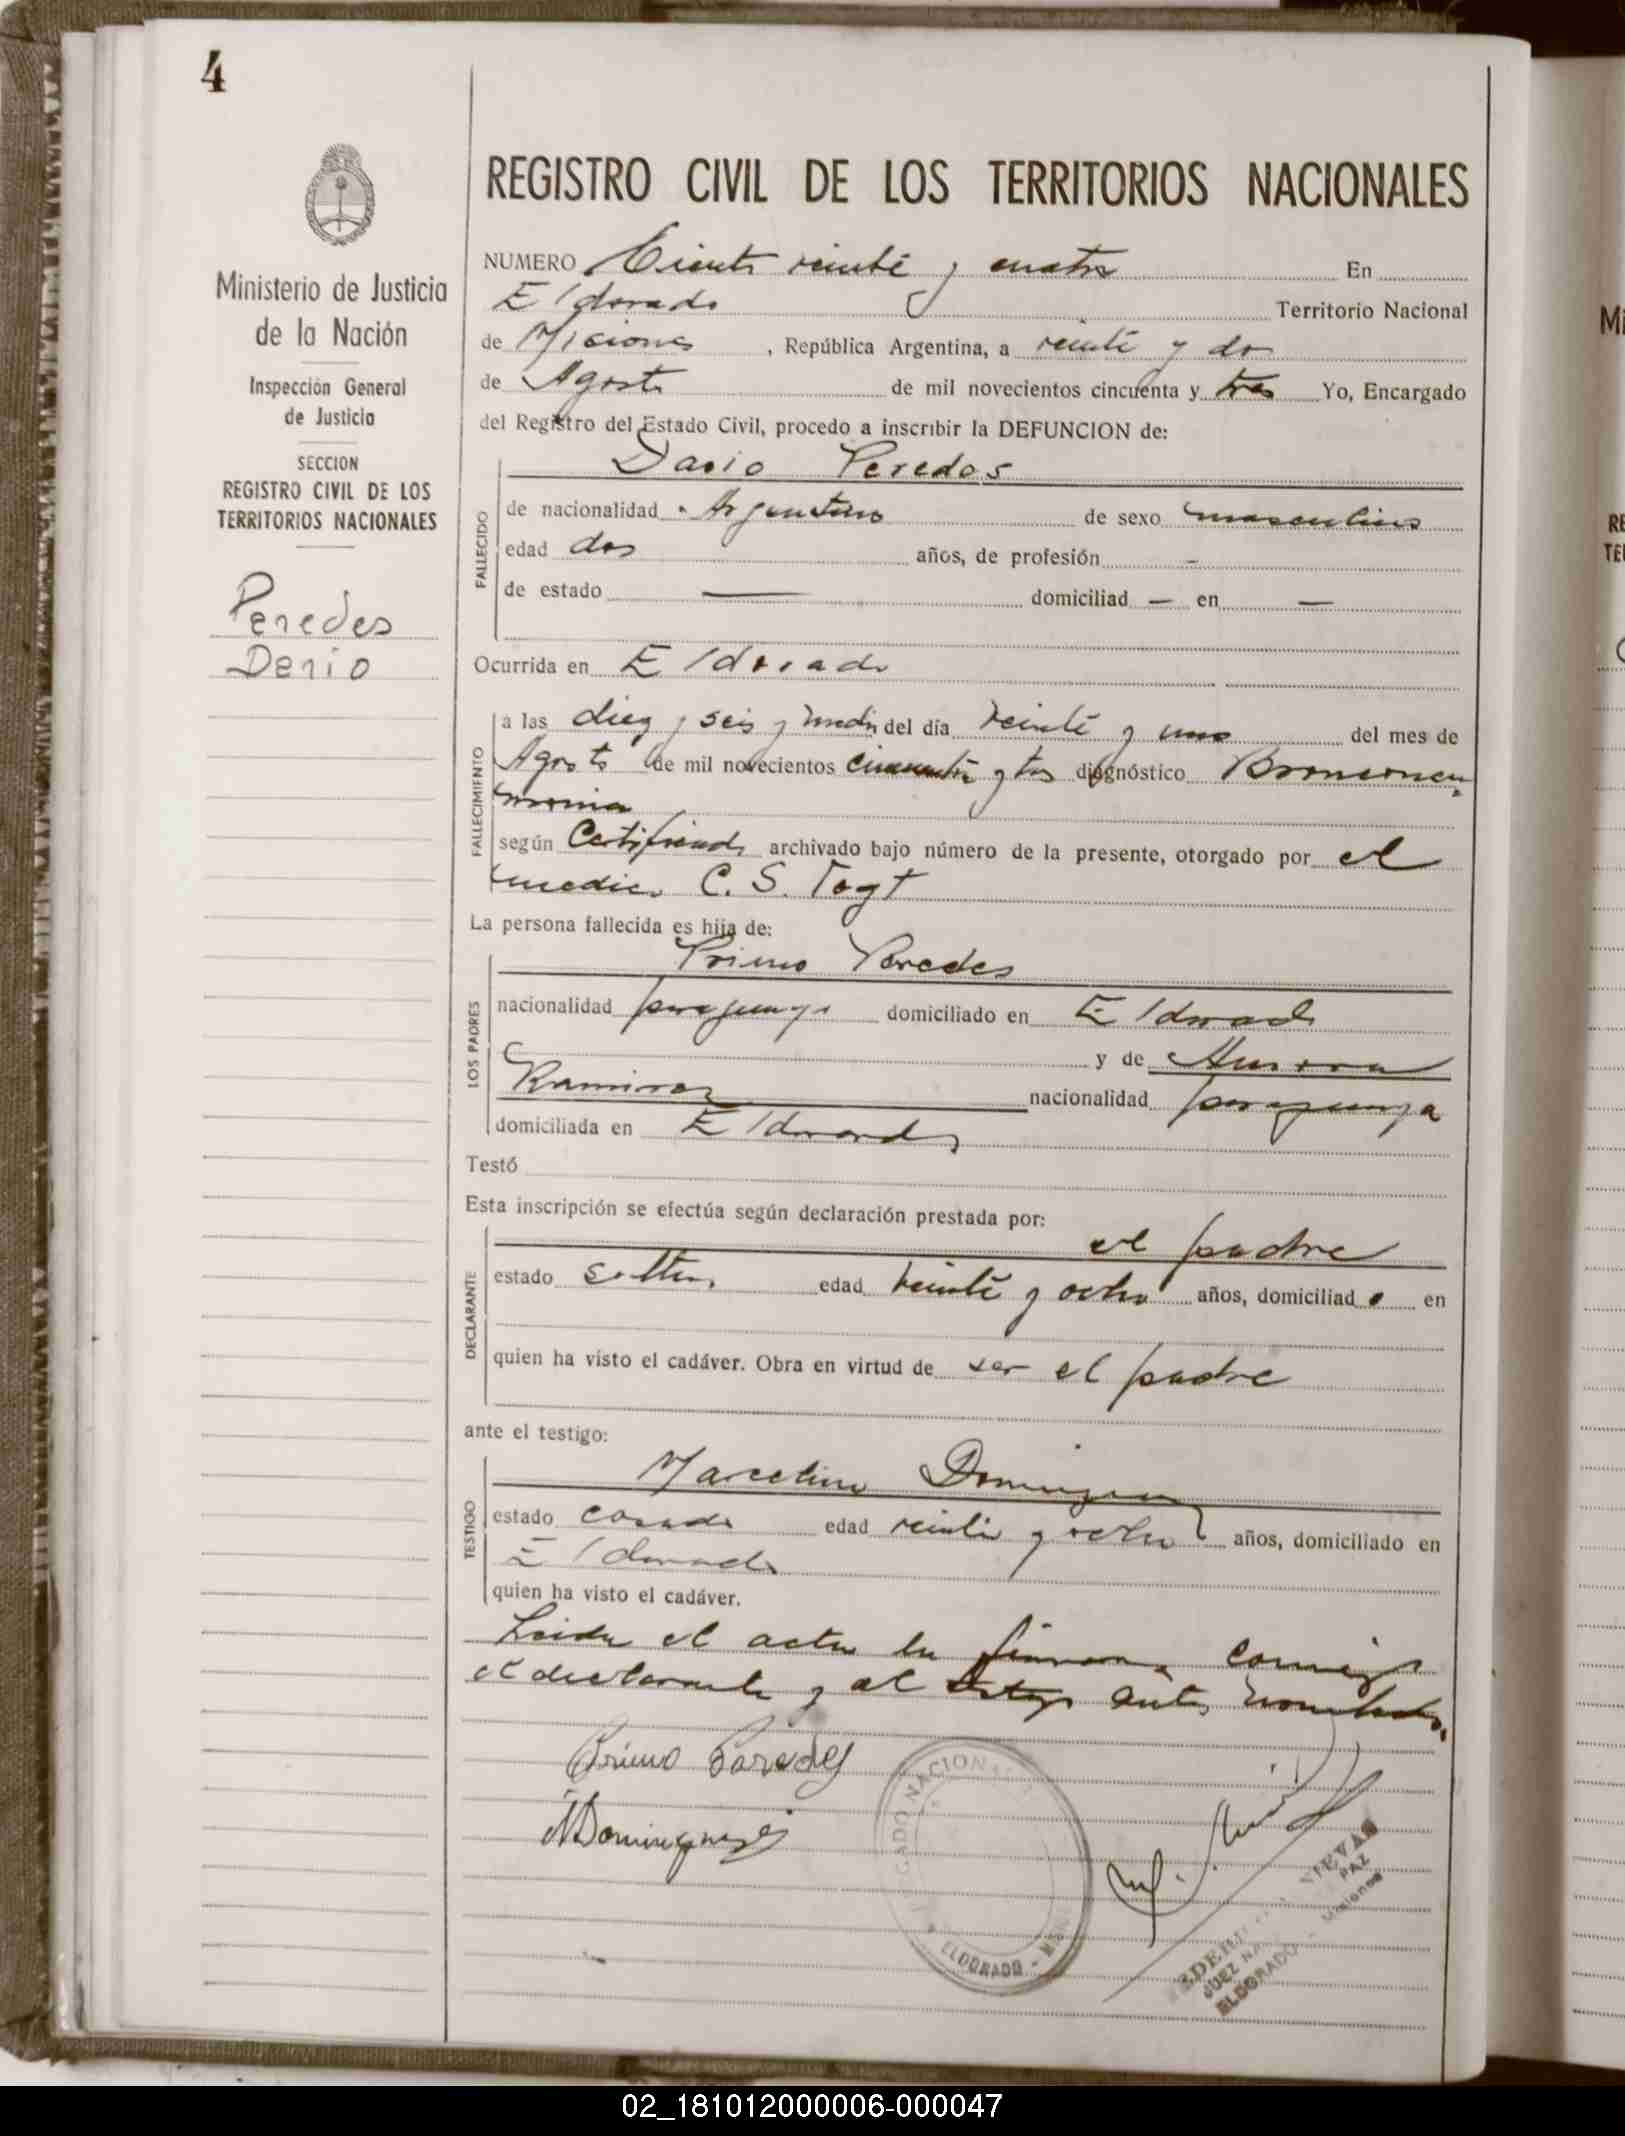 4
Ministerio de Justicia
de la Nación
Inspección General
de Justicia
SECCION
REGISTRO CIVIL DE LOS
TERRITORIOS NACIONALES
Peredes
Derio
REGISTRO CIVIL DE LOS TERRITORIOS NACIONALES
NUMERO Ciento veinte y cuatro En
Eldorado Territorio Nacional
de Misiones , República Argentina, a veinte y dos
de Agosto de mil novecientos cincuenta y tres Yo, Encargado
del Registro del Estado Civil, procedo a inscribir la DEFUNCION de:
Dario Peredes
FALLECIDO
de nacionalidad Argentino de sexo masculino
edad dos años, de profesión -
de estado — domiciliad — en —
Ocurrida en Eldorado
FALLECIMIENTO
a las diez y seis y media del día veinte y uno del mes de
Agosto de mil novecientos cincuenta y tres diagnóstico Bronconeu
monia
según Certificado archivado bajo número de la presente, otorgado por el
medico C. S. Vogt
La persona fallecida es hija de:
Primo Paredes
LOS PADRES
nacionalidad paraguayo domiciliado en Eldorado
y de Aurora
Ramirez nacionalidad paraguaya
domiciliada en Eldorado
Testó
Esta inscripción se efectúa según declaración prestada por:
el padre
DECLARANTE
estado soltero edad veinte y ocho años, domiciliad o en
quien ha visto el cadáver. Obra en virtud de ser el padre
ante el testigo:
Marcelino Dominguez
TESTIGO
estado casado edad veinte y ocho años, domiciliado en
Eldorado
quien ha visto el cadáver.
Leida el acta la firman conmigo
el declarante y el testigo antes nombrado.
Primo Paredes
M Dominguez
JUZGADO NACIONAL
ELDORADO - MISIONES
NIEVAS
JUEZ PAZ
ELDORADO - Misiones
Mi
RE
TE
02_181012000006-000047